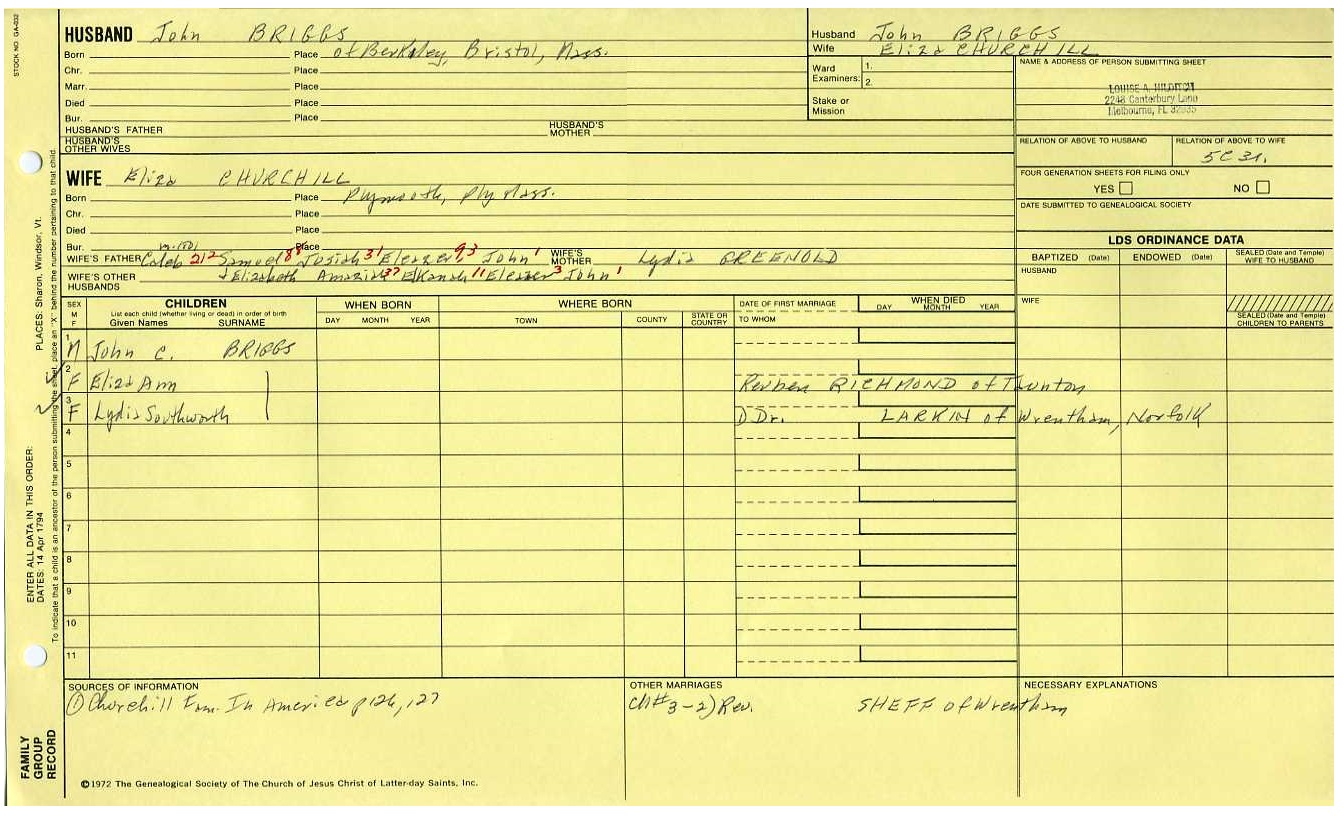 STOCK NO. GA-032
HUSBAND John BRIGGS
Born Place of Berkley, Bristol, Mass.
Chr. Place
Marr. Place
Died Place
Bur. Place
HUSBAND'S FATHER HUSBAND'S MOTHER
HUSBAND'S OTHER WIVES
Husband John BRIGGS
Wife Eliza CHURCHILL
Ward Examiners: 1.
2.
Stake or Mission
NAME & ADDRESS OF PERSON SUBMITTING SHEET
LOUISE A. HILDITCH
2248 Canterbury Lane
Melbourne, FL 32935
RELATION OF ABOVE TO HUSBAND RELATION OF ABOVE TO WIFE
5C 3r.
FOUR GENERATION SHEETS FOR FILING ONLY
YES NO
DATE SUBMITTED TO GENEALOGICAL SOCIETY
WIFE Eliza CHURCHILL
Born Place Plymouth, Ply Mass.
Chr. Place
Died Place
Bur. Place
m-1801
WIFE'S FATHER Caleb 212 Samuel 88 Josiah 31 Eleazer 93 John 1 WIFE'S MOTHER Lydia GREENOLD
WIFE'S OTHER HUSBANDS + Elizabeth Amaziah 37 Elkanah 11 Eleazer 3 John 1
LDS ORDINANCE DATA
BAPTIZED (Date) ENDOWED (Date) SEALED (Date and Temple) WIFE TO HUSBAND
HUSBAND
WIFE
SEALED (Date and Temple) CHILDREN TO PARENTS
SEX M F
CHILDREN
List each child (whether living or dead) in order of birth
Given Names SURNAME
WHEN BORN
DAY MONTH YEAR
WHERE BORN
TOWN COUNTY STATE OR COUNTRY
DATE OF FIRST MARRIAGE
TO WHOM
WHEN DIED
DAY MONTH YEAR
1 M John C. BRIGGS
2 F Eliza Ann Reuben RICHMOND of Taunton
3 F Lydia Southworth D Dr. LARKIN of Wrentham, Norfolk
4
5
6
7
8
9
10
11
SOURCES OF INFORMATION
① Churchill Fam. In America p 126, 127
OTHER MARRIAGES
Ch#3-2) Rev. SHEFF of Wrentham
NECESSARY EXPLANATIONS
©1972 The Genealogical Society of The Church of Jesus Christ of Latter-day Saints, Inc.
FAMILY GROUP RECORD
ENTER ALL DATA IN THIS ORDER:
DATES: 14 Apr 1794
PLACES: Sharon, Windsor, Vt.
To indicate that a child is an ancestor of the person submitting the sheet, place an "X" behind the number pertaining to that child.